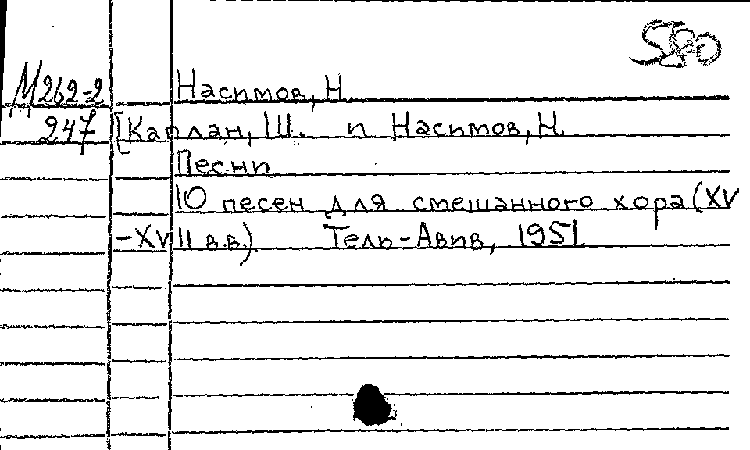 580
М262-2 Насимов, Н.
247 [Каплан, Ш. и Насимов, Н.
Песни
10 песен для смешанного хора (XV
-XVII в.в.) Тель-Авив, 1951